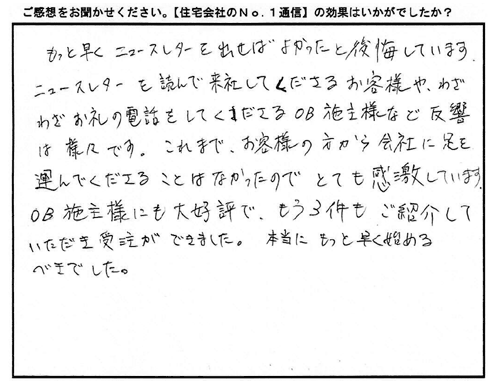 ご感想をお聞かせください。【住宅会社のNo.1通信】の効果はいかがでしたか？
もっと早くニュースレターを出せばよかったと後悔しています。
ニュースレターを読んで来社してくださるお客様や、わざ
わざお礼の電話をしてくださるOB施主様など反響
は様々です。これまで、お客様の方から会社に足を
運んでくださることはなかったのでとても感激しています。
OB施主様にも大好評で、もう3件もご紹介して
いただき受注ができました。本当にもっと早く始める
べきでした。